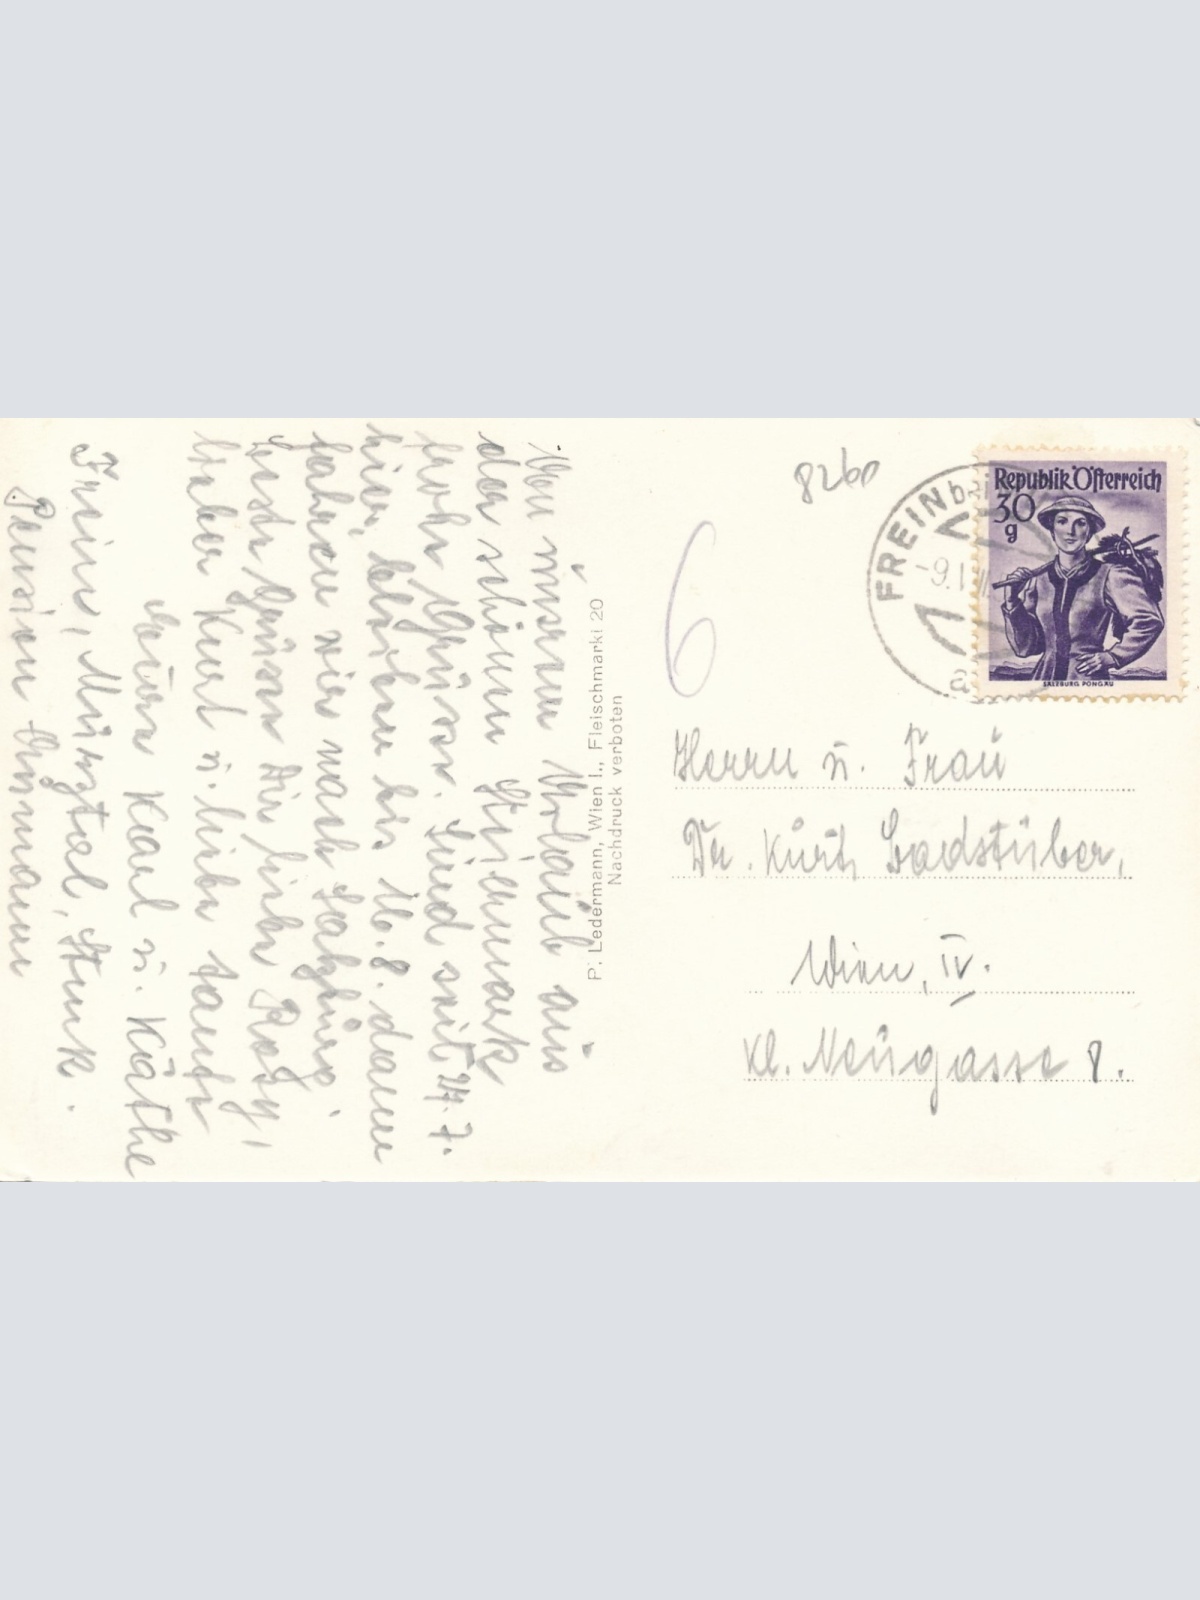 Von unserem Urlaub aus
der schönen Steiermark
frohe Grüsse. Sind seit 24.7.
hier, bleiben bis 16.8. dann
fahren wir nach Salzburg.
Seste grüsse Dir liebe Rosy,
lieber Kurt u. liebe Tante
Eure Karl u. Käthe
Frein, Mürztal, Stmk.
Pension
P. Ledermann, Wien I., Fleischmarkt 20
Nachdruck verboten
8260
6
FREIN b
-9.
a
Republik Österreich
30
g
SALZBURG, PONGAU
Herrn u. Frau
Dr. Kurt Ladstüber,
Wien, IV.
kl. Neugasse 8.